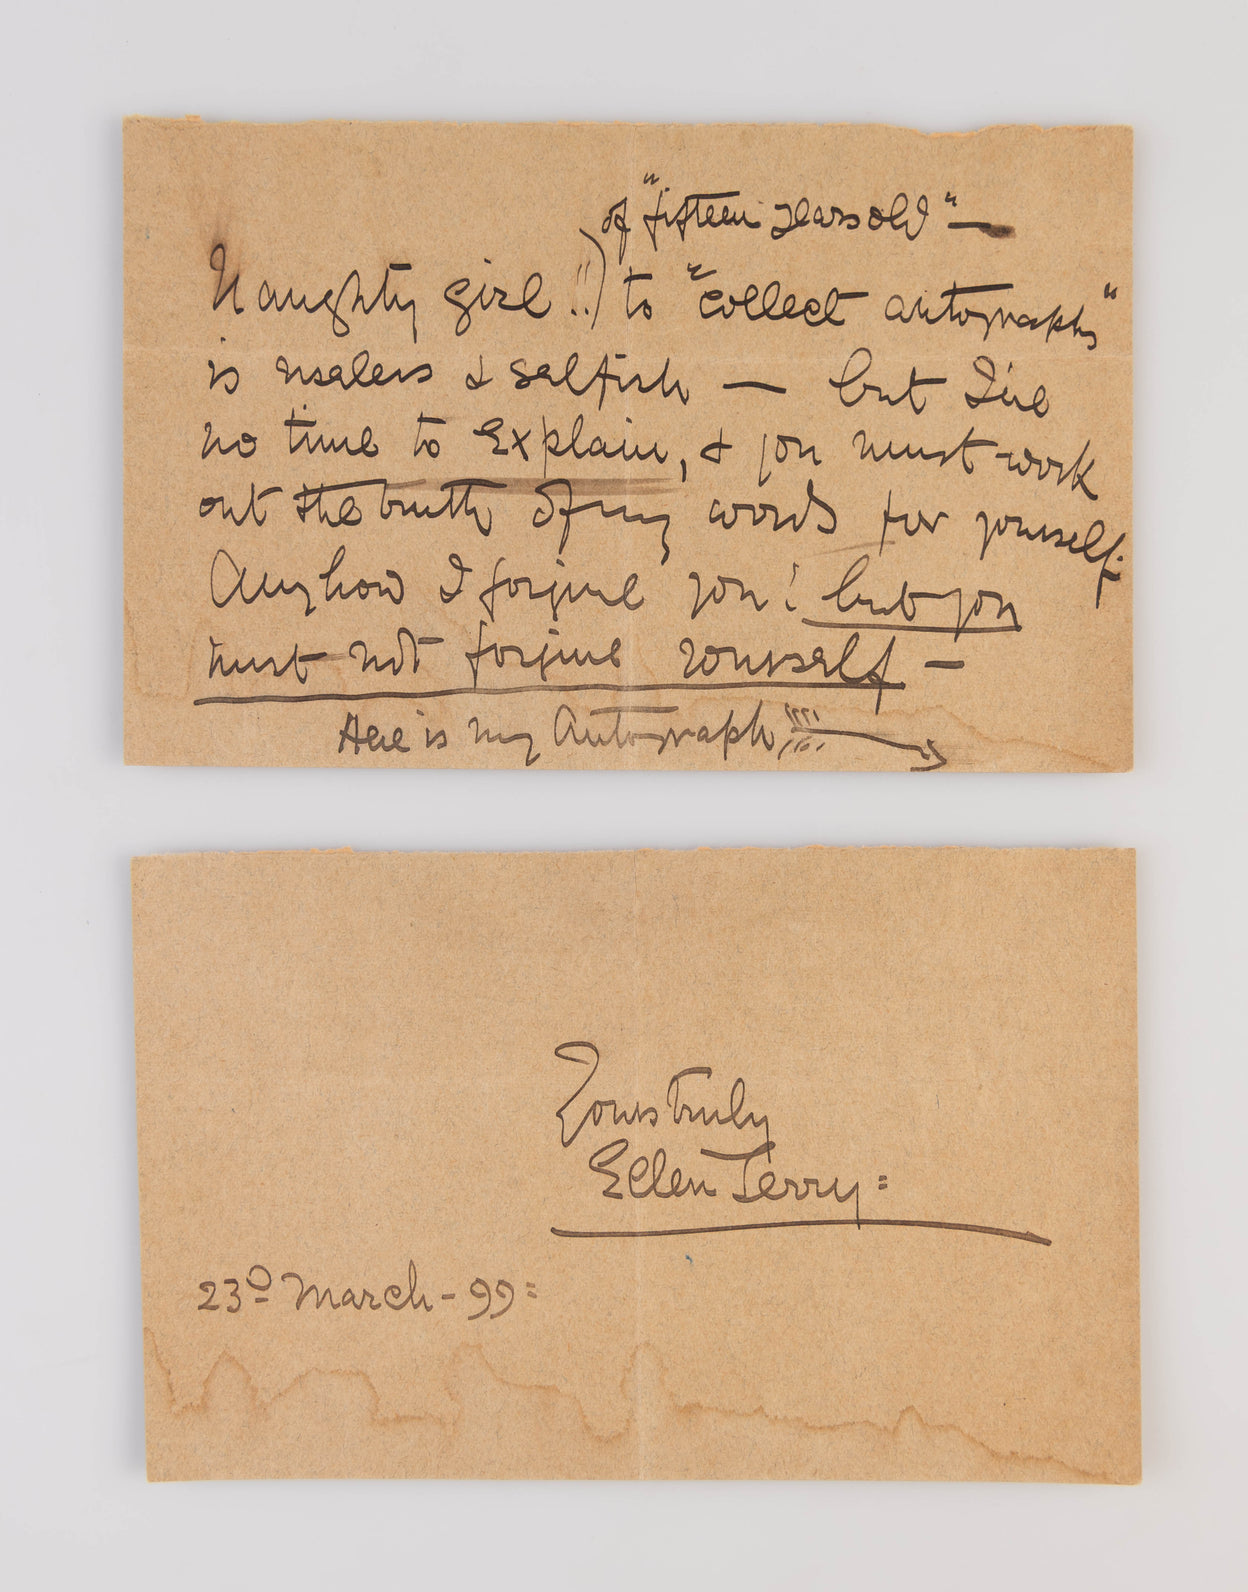 of "fifteen years old" —
Naughty girl!!) to "collect autographs"
is useless & selfish — but I've
no time to Explain, & you must work
out the truth of my words for yourself.
Anyhow I forgive you! but you
must not forgive yourself —
Here is my Autograph
Yours truly
Ellen Terry =
23º March - 99 =